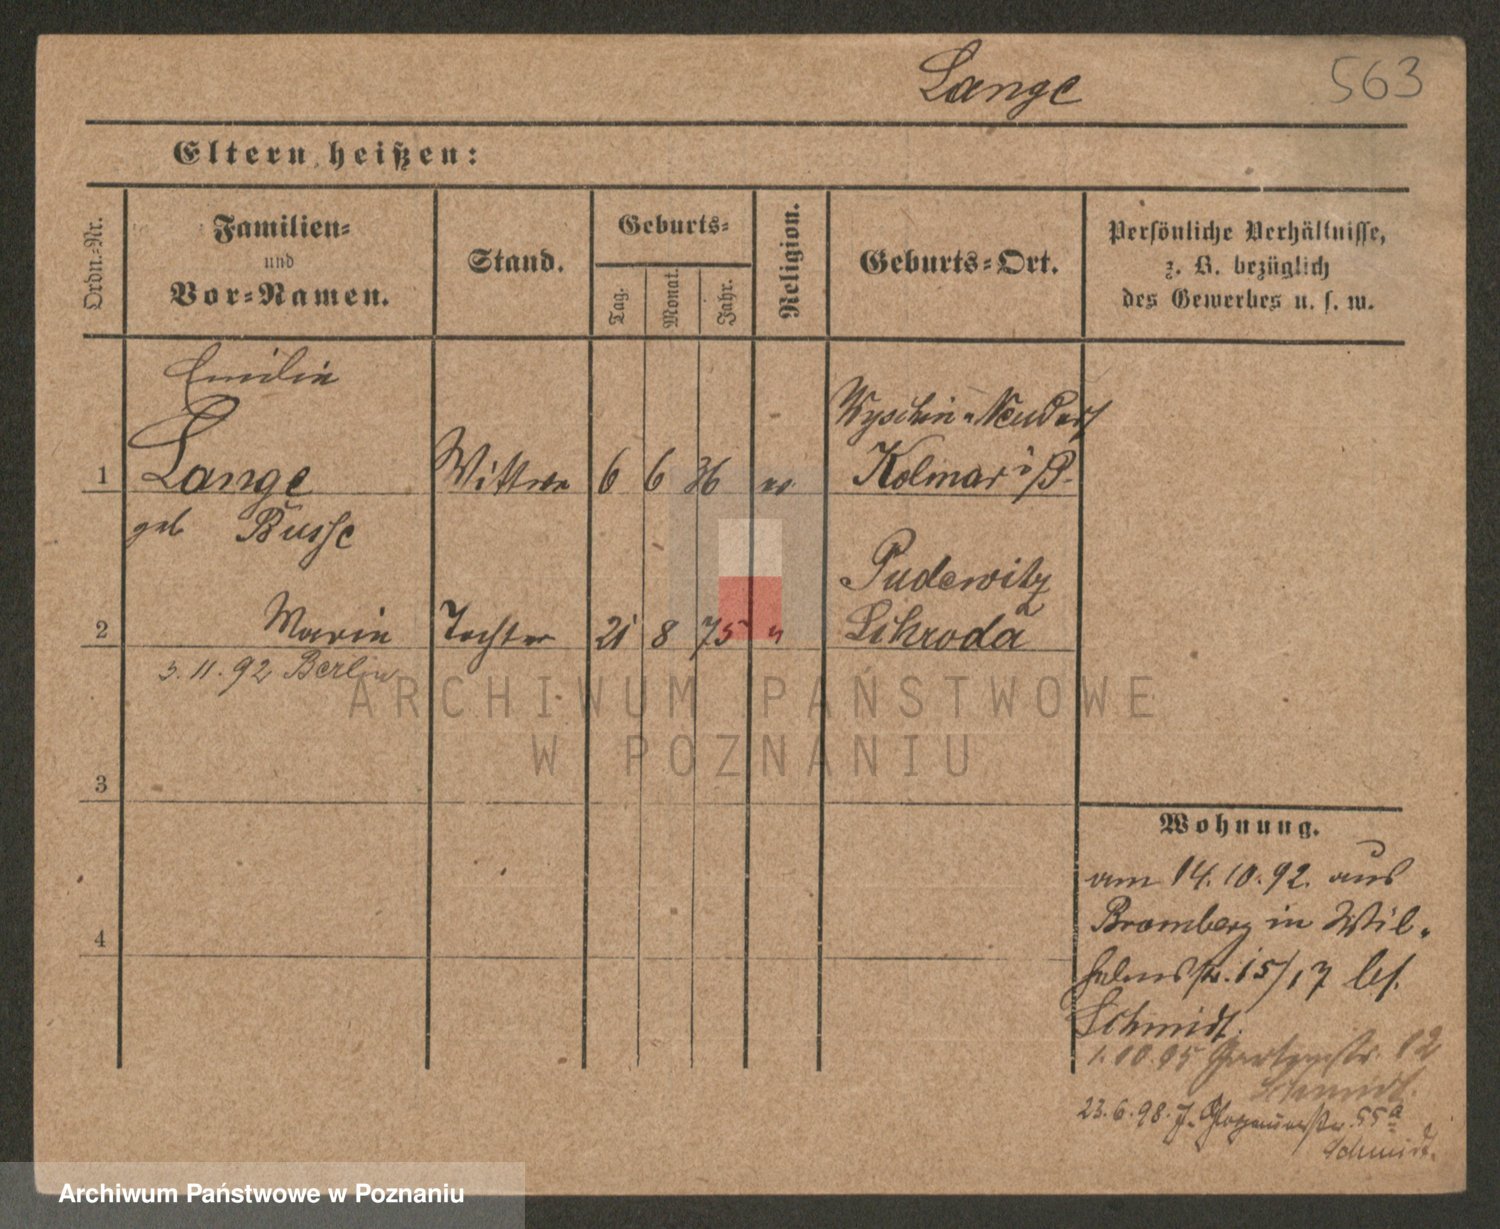 Lange
563
Eltern heißen:
Ordn.-Nr.
Familien-
und
Vor-Namen.
Stand.
Geburts-
Tag.
Monat.
Jahr.
Religion.
Geburts-Ort.
Persönliche Verhältnisse,
z. B. bezüglich
des Gewerbes u. s. w.
Emilie
1 Lange Wittwe 6 6 36
Wyschin-Neudorf
Kolmar i/P.
geb Busse
Pudewitz
2 Marie Tochter 21 8 75 "
Schroda
3.11.92 Berlin
ARCHIWUM PAŃSTWOWE
W POZNANIU
3
4
Wohnung.
am 14.10.92. aus
Bromberg in Wil-
helmstr. 15/17 bei
Schmidt.
1.10.95 Gartenstr. 12
Schmidt.
23.6.98. 55a
Schmidt.
Archiwum Państwowe w Poznaniu